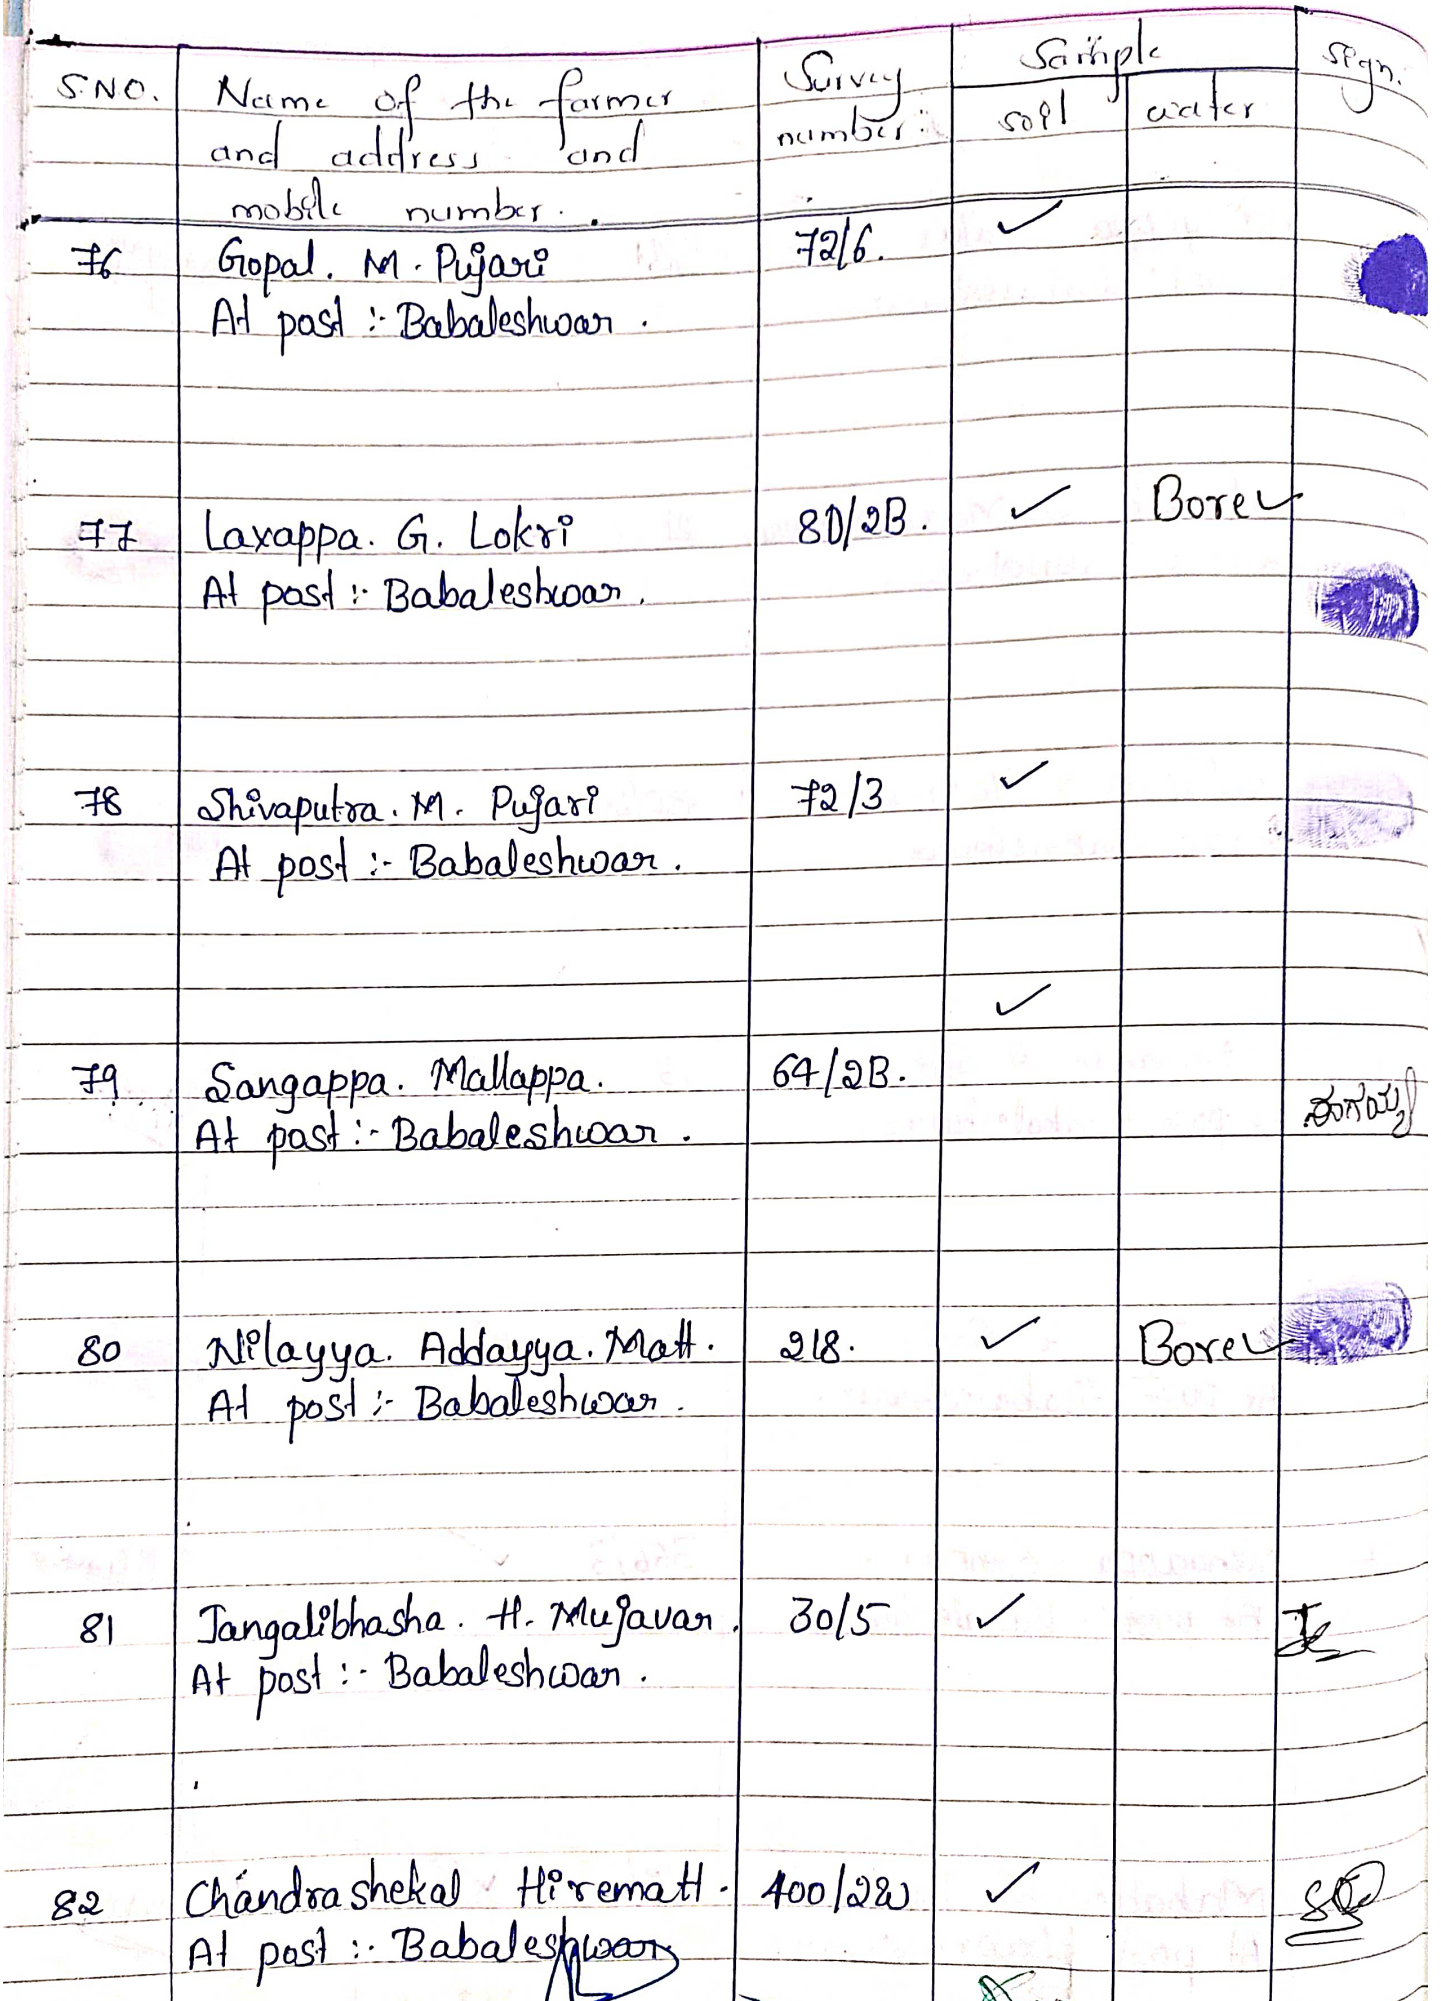 S.NO. Name of the farmer and address and mobile number. Survey number: Sample soil water Sign.
76 Gopal. M. Pujari 72/6. ✓
At post :- Babaleshwar.
77 Laxappa. G. Lokri 80/2B. ✓ Bore ✓
At post :- Babaleshwar.
78 Shivaputra. M. Pujari 72/3 ✓
At post :- Babaleshwar.
✓
79 Sangappa. Mallappa. 64/2B.
At post :- Babaleshwar. ಸಂಗಯ್ಯ
80 Nilayya. Addayya. Matt. 218. ✓ Bore ✓
At post :- Babaleshwar.
81 Jangalibhasha. H. Mujavar. 30/5 ✓
At post :- Babaleshwar.
82 Chandrashekal Hirematt. ✓
At post :- Babaleshwar